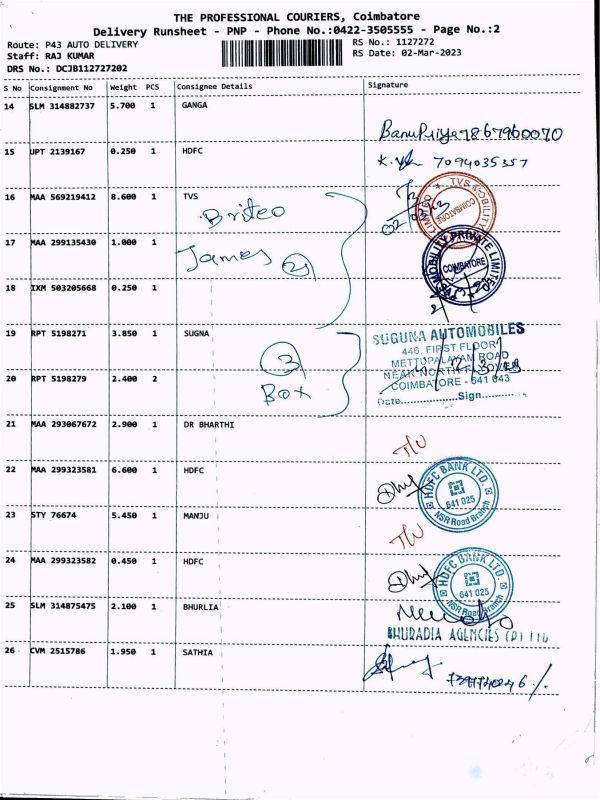 THE PROFESSIONAL COURIERS, Coimbatore
Delivery Runsheet - PNP - Phone No.:0422-3505555 - Page No.:2
Route: P43 AUTO DELIVERY
Staff: RAJ KUMAR
DRS No.: DCJB112727202
RS No.: 1127272
RS Date: 02-Mar-2023
S No Consignment No Weight PCS Consignee Details Signature
14 SLM 314882737 5.700 1 GANGA
BanuPriya 7867960070
15 UPT 2139167 0.250 1 HDFC
7094035357
16 MAA 569219412 8.600 1 TVS
Briteo
TVS MOBILITY
COIMBATORE
17 MAA 299135430 1.000 1
James 2
MOBILITY PRIVATE LIMITED
COIMBATORE
18 IXM 503205668 0.250 1
19 RPT 5198271 3.850 1 SUGNA
3
Box
SUGUNA AUTOMOBILES
446, FIRST FLOOR
METTUPALAYAM ROAD
NEAR NORTH
COIMBATORE - 641 043
Date Sign
20 RPT 5198279 2.400 2
21 MAA 293067672 2.900 1 DR BHARTHI
22 MAA 299323581 6.600 1 HDFC
HDFC BANK LTD.
641 025
NSR Road Branch
23 STY 76674 5.450 1 MANJU
24 MAA 299323582 0.450 1 HDFC
HDFC BANK LTD.
641 025
NSR Road Branch
25 SLM 314875475 2.100 1 BHURLIA
BHURADIA AGENCIES (P) LTD
26 CVM 2515786 1.950 1 SATHIA